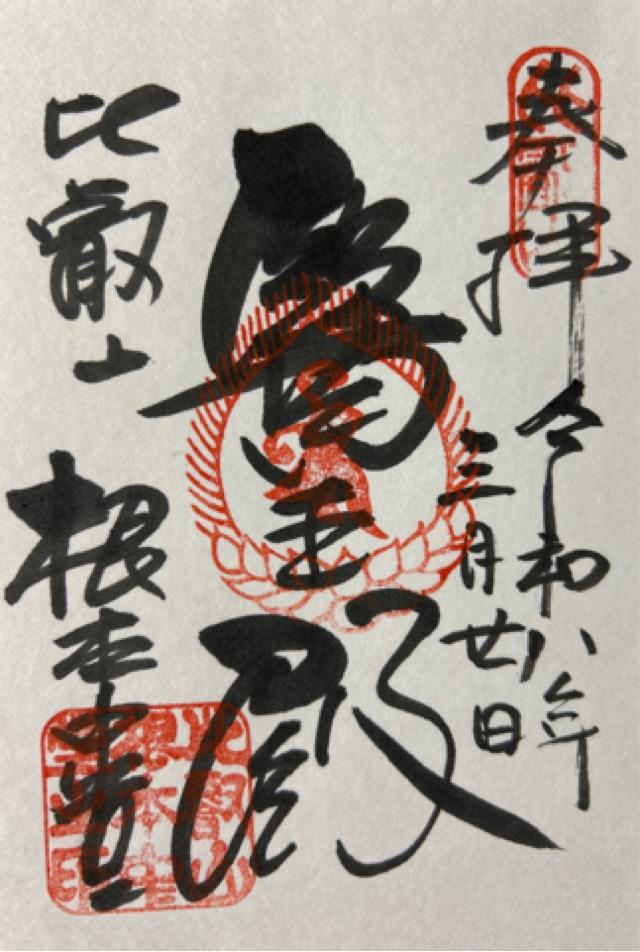 奉拝
令和八年
三月廿日
醫王殿
比叡山
根本中堂